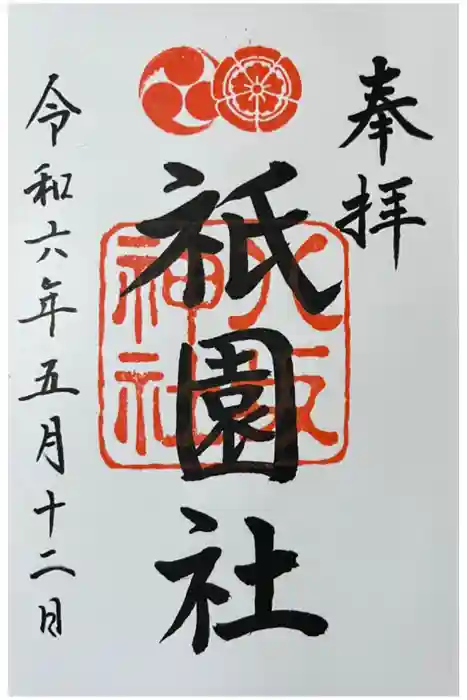 奉拝
祇園社
八坂神社
令和六年五月十二日